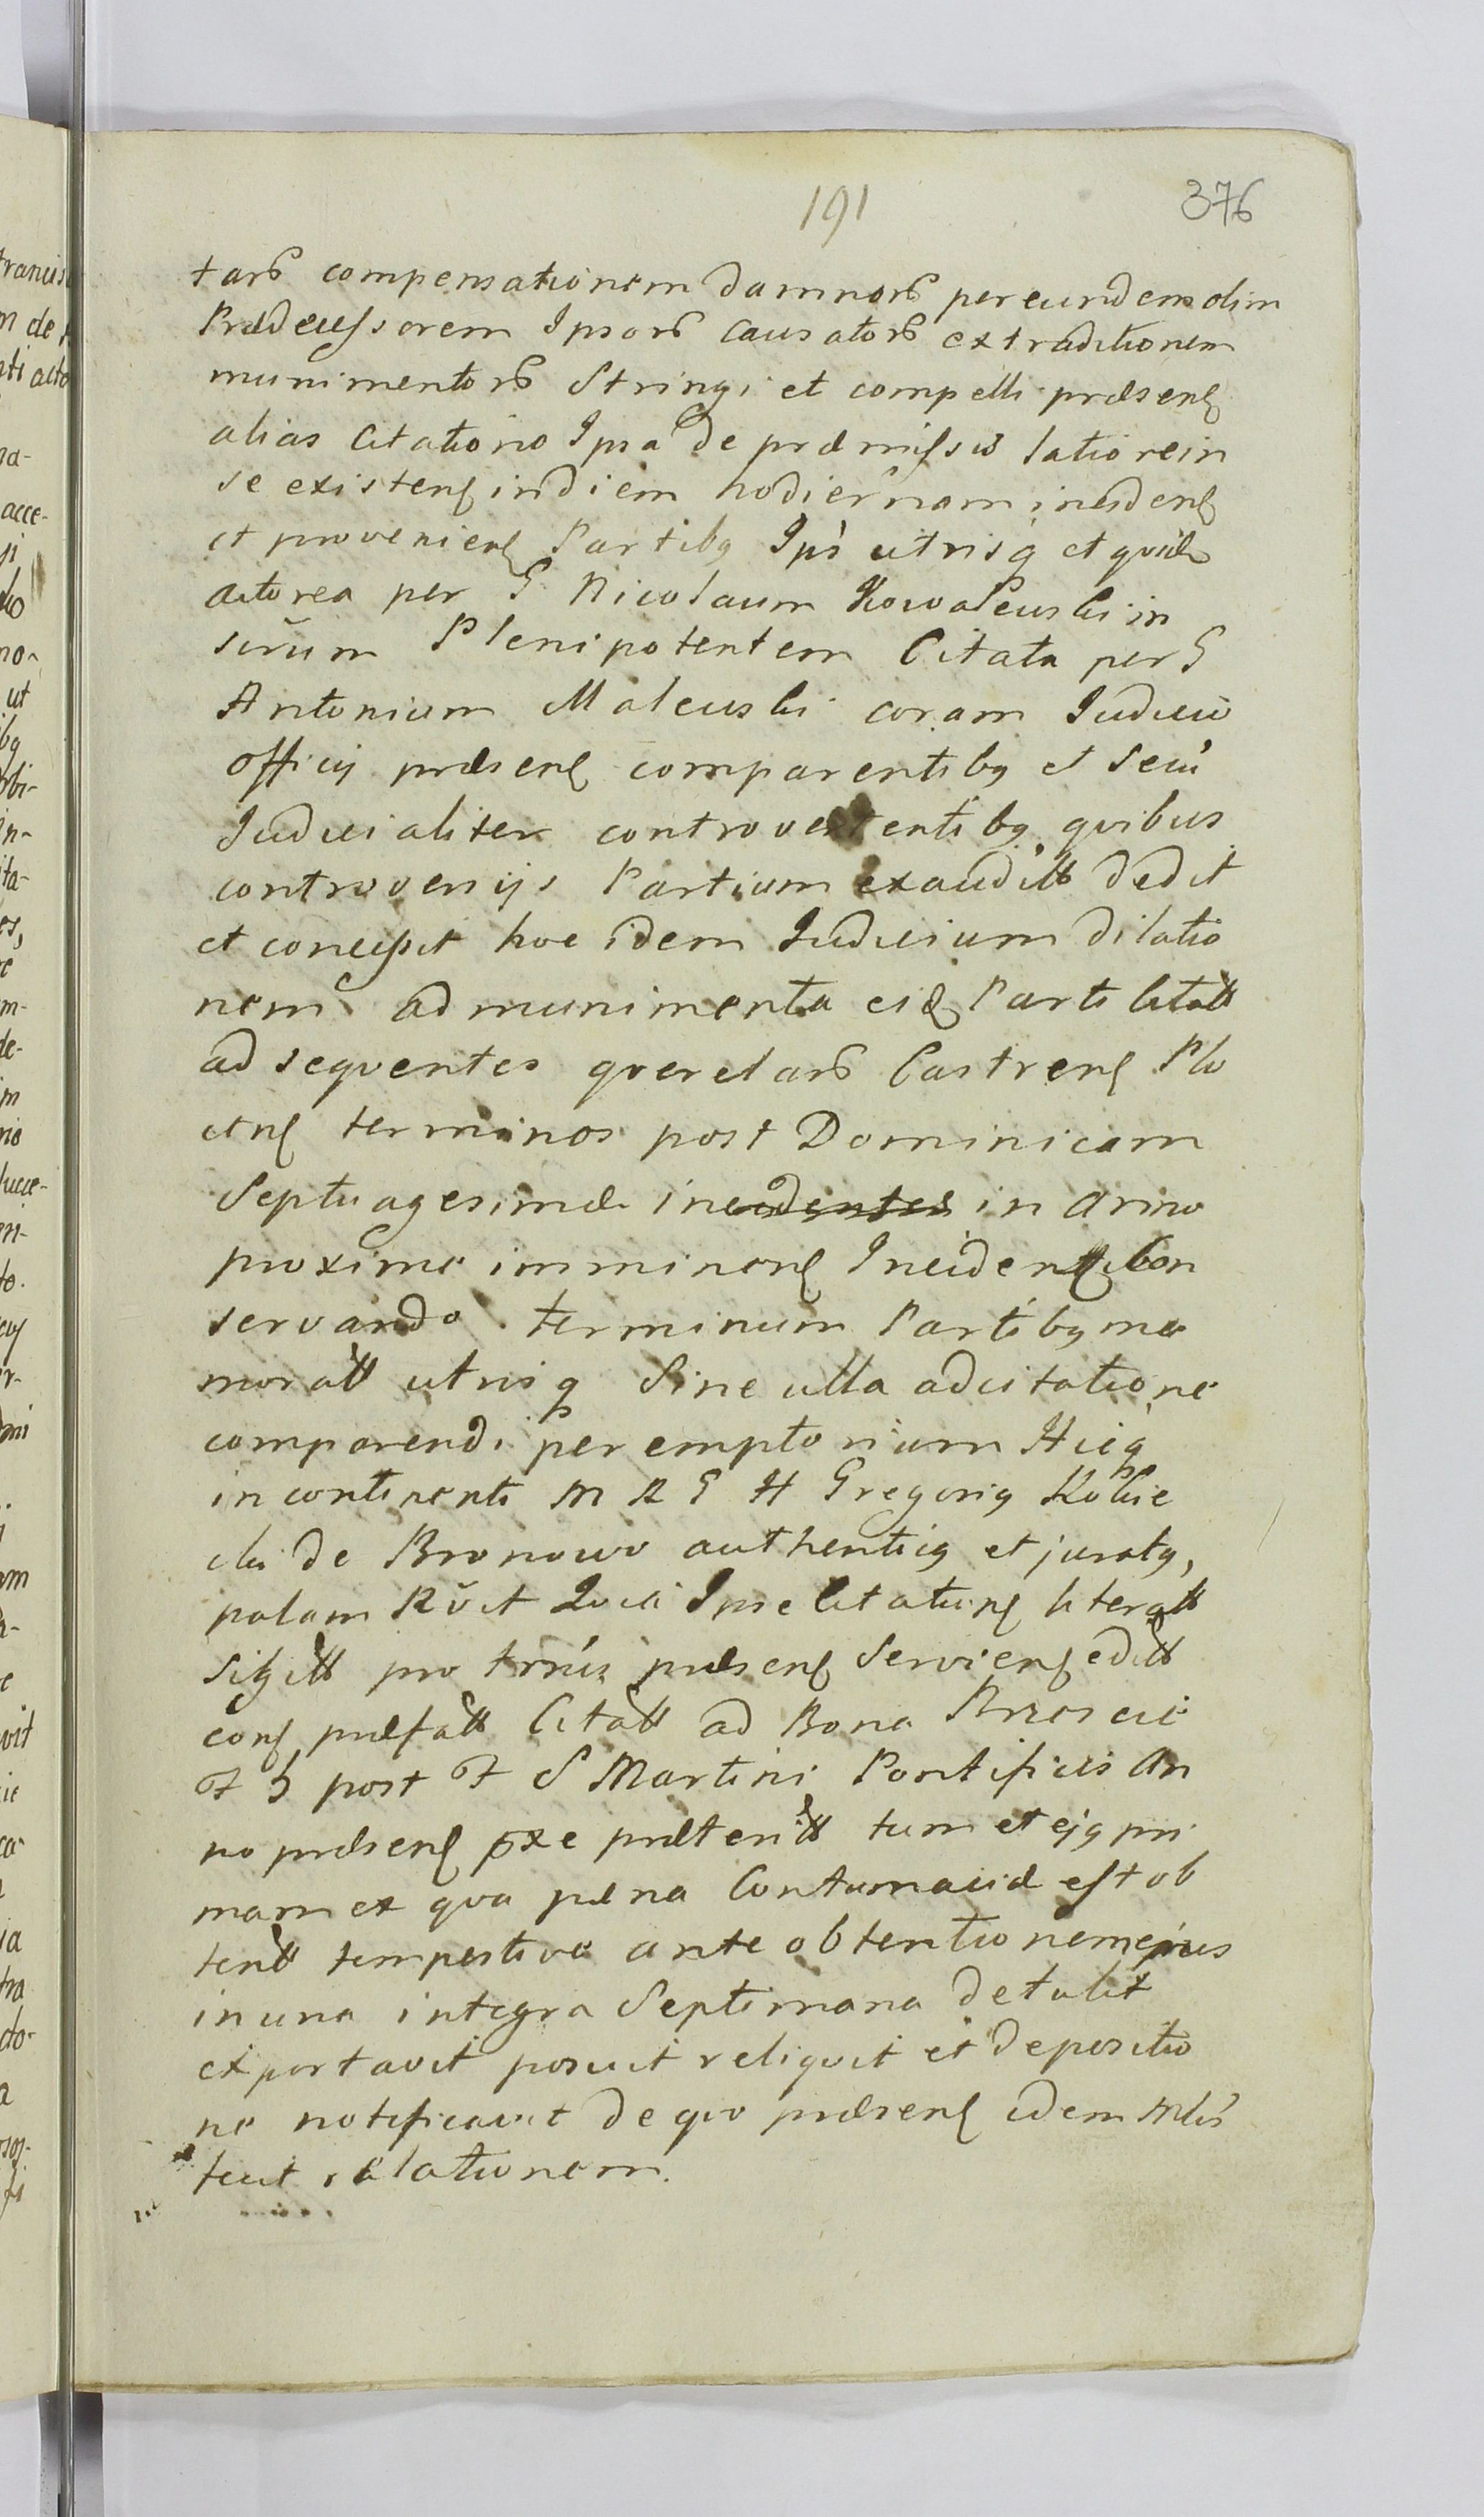 191
376
tarƶ compensationem damnorƶ per eundem olim
Prædecessorem Ipsorƶ causatorƶ extraditionem
munimentorƶ Stringi et compelli præsenꝭ
alias Citatione Ipsa de præmissis latiore in
se existenꝭ in diem hodiernam incidenꝭ
et provenienꝭ Partibꝫ Ips̀ utrisqꝫ et quid
actorea per G Nicolaum Kowalewski in
sui̅um Plenipotentem Citata per G
Antonium Malewski coram Iudicio
officij præsenꝭ comparentibꝫ et Secu̓
Iudicialiter controvertentibꝫ quibus
controversijs Partium exauditt dedit
et concessit hoc idem Iudicium dilatio
nem ad munimenta eidꝭ Parti Citatt
ad sequentes querelarƶ Castrenꝭ Plo
cenꝭ terminos post Dominicam
Septuagesimæ incidentes in anno
proxime imminenꝭ Incidenꝭ Con
servando terminum Partibꝫ me
moratt utrisqꝫ Sine ulla adcitatione
comparendi peremptorium Hicqꝫ
in continenti M R G H Gregoriꝫ Kobie
cki de Bronowo authenticꝫ et juratꝫ,
palam Rv̅it Quia Ipse Citationꝭ literatt
sigitt pro trn̅is præsenꝭ Servienꝭ editt
conꝭ præfatt Citatt ad Bona Brzescie
F 5 post F S Martini Pontificis An
no præsenꝭ pxe præteritt tum et ejꝫ pri
mam ex qva pæna Contumaciæ est ob
tentt tempestive ante obtentionem ejus
in una integra Septimana detulit
exportavit posuit reliquit et depositio
ne notificavit de quo præsenꝭ idem Mis̓
fecit relationem.